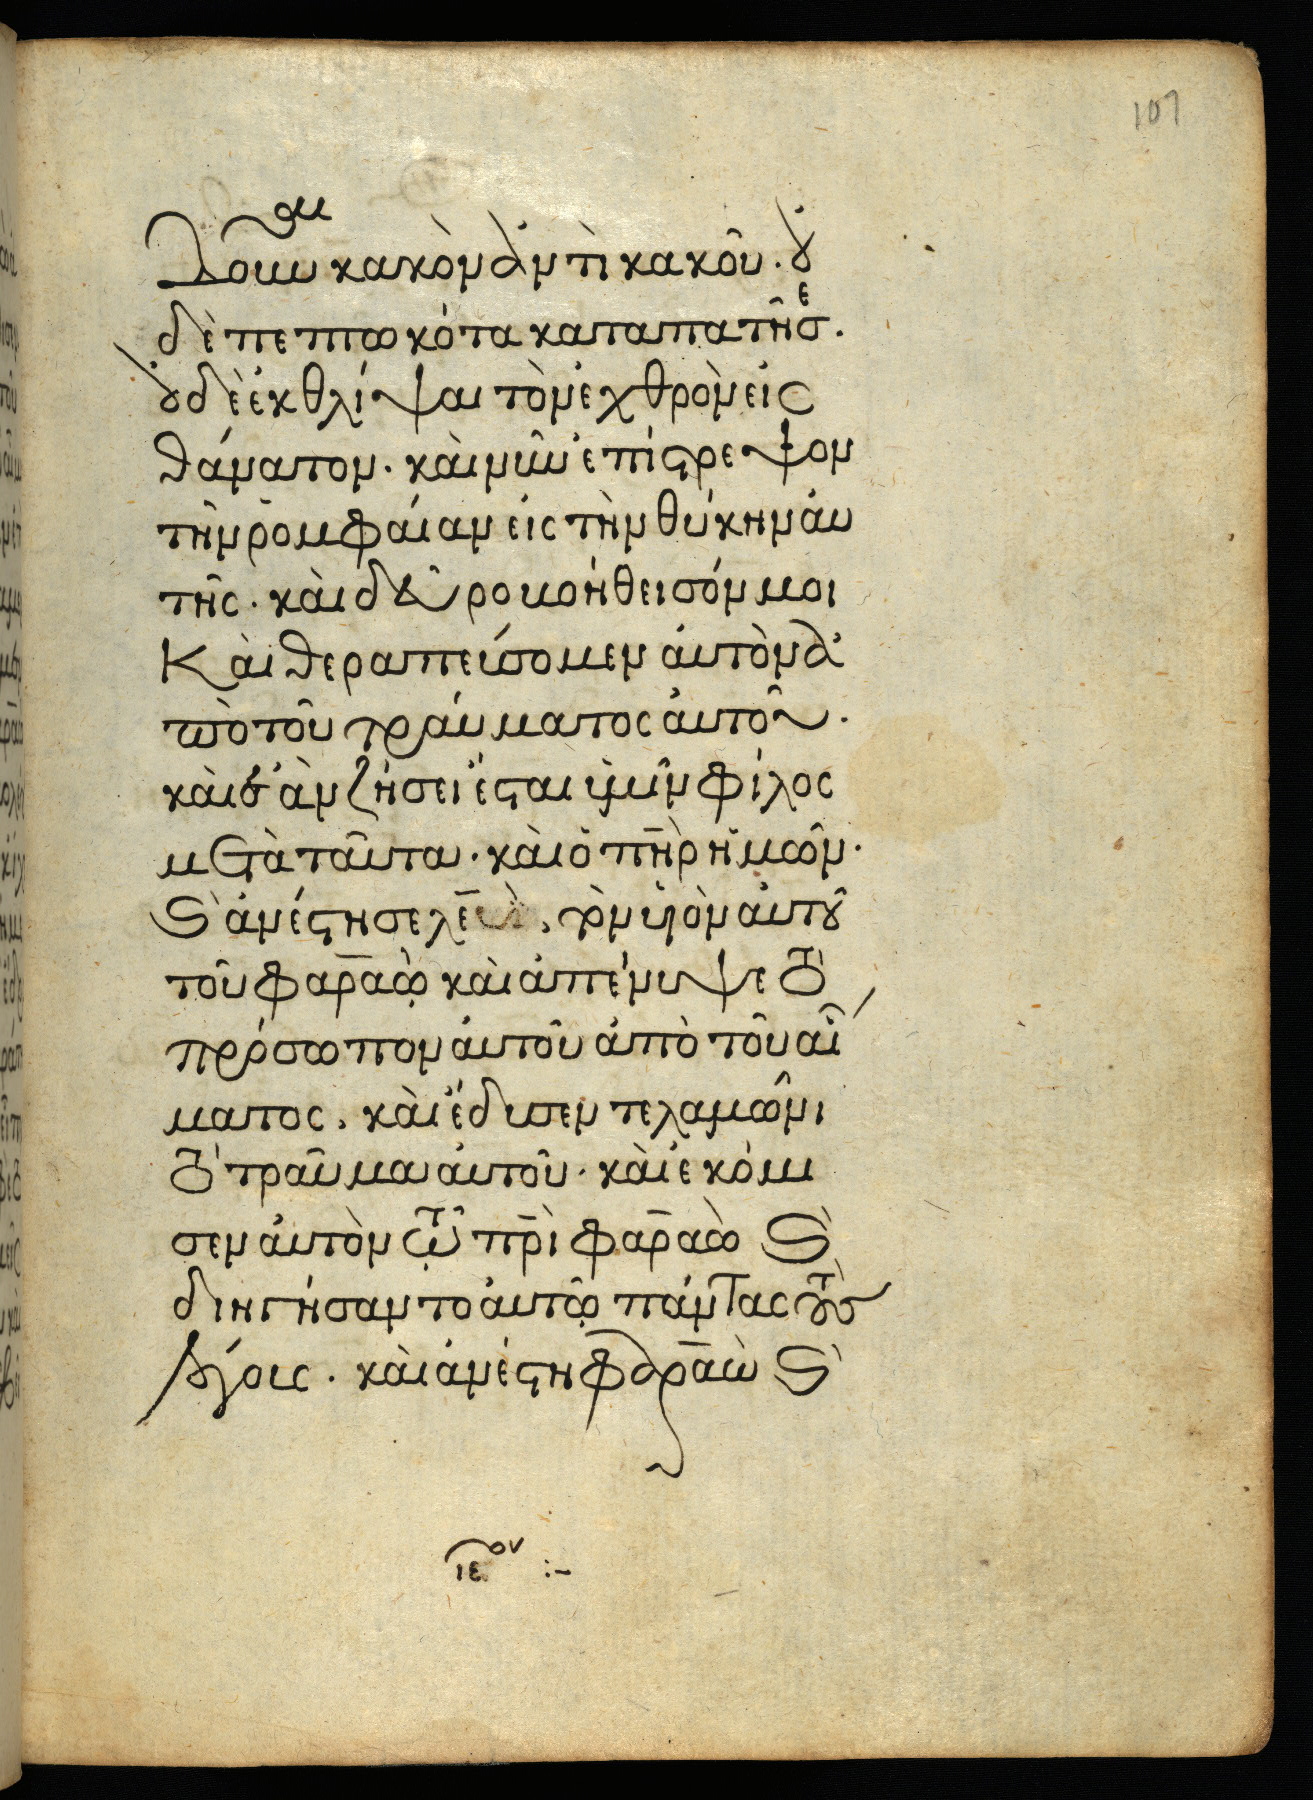 δοῦναι κακὸν ἀντὶ κακοῦ. οὐ
δὲ πεπτωκότα καταπατῆσε.
οὐδὲ ἐκθλίψαι τὸν ἐχθρὸν εἰς
θάνατον. καὶ νῦν ἐπίστρεψον
τὴν ρομφαίαν εἰς τὴν θύκην αὐ
τῆς. καὶ δεῦρο βοήθεισόν μοι
Καὶ θεραπεύσομεν αὐτὸν ἀ
πὸ τοῦ τραύματος αὐτοῦ.
καὶ ἐὰν ζήσει ἔσται ὑμῖν φίλος
μετὰ ταῦτα. καὶ ὁ πη̅ρ ἡμῶν.
καὶ ἀνέστησε λευὶ, τὸν υἱὸν αὐτοῦ
τοῦ φαραὼ καὶ ἀπένιψε τὸ
πρόσωπον αὐτοῦ ἀπὸ τοῦ αἵ
ματος, καὶ ἔδυσεν τελαμῶνι
τὸ τραῦμα αὐτοῦ. καὶ ἐκόμι
σεν αὐτὸν τῷ πρ̅ὶ φαραὼ καὶ
διηγήσαντο αὐτῷ πάντας τοὺς
λόγοις. καὶ ἀνέστη φαραὼ καὶ
ιε ον :-
107